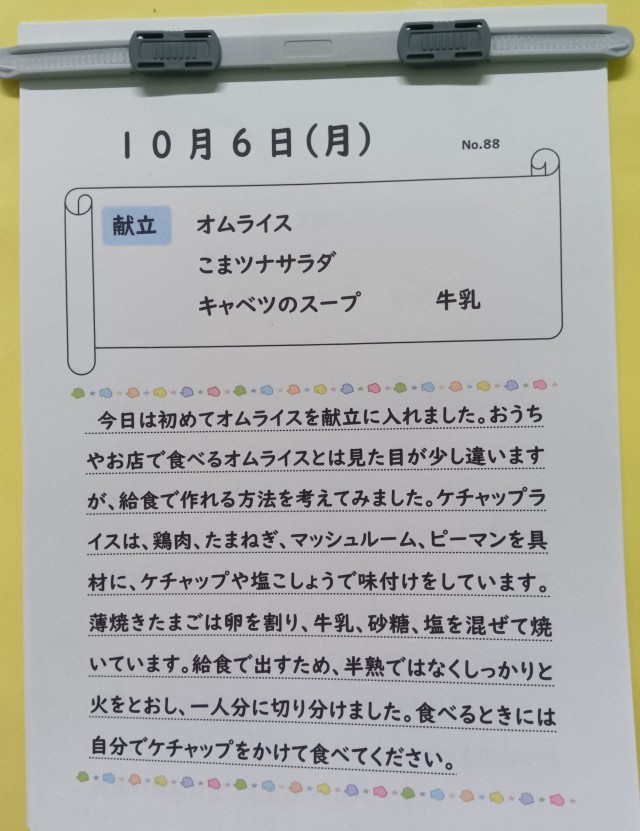 10月6日(月)
No.88
献立 オムライス
こまツナサラダ
キャベツのスープ 牛乳
今日は初めてオムライスを献立に入れました。おうち
やお店で食べるオムライスとは見た目が少し違います
が、給食で作れる方法を考えてみました。ケチャップラ
イスは、鶏肉、たまねぎ、マッシュルーム、ピーマンを具
材に、ケチャップや塩こしょうで味付けをしています。
薄焼きたまごは卵を割り、牛乳、砂糖、塩を混ぜて焼
いています。給食で出すため、半熟ではなくしっかりと
火をとおし、一人分に切り分けました。食べるときには
自分でケチャップをかけて食べてください。